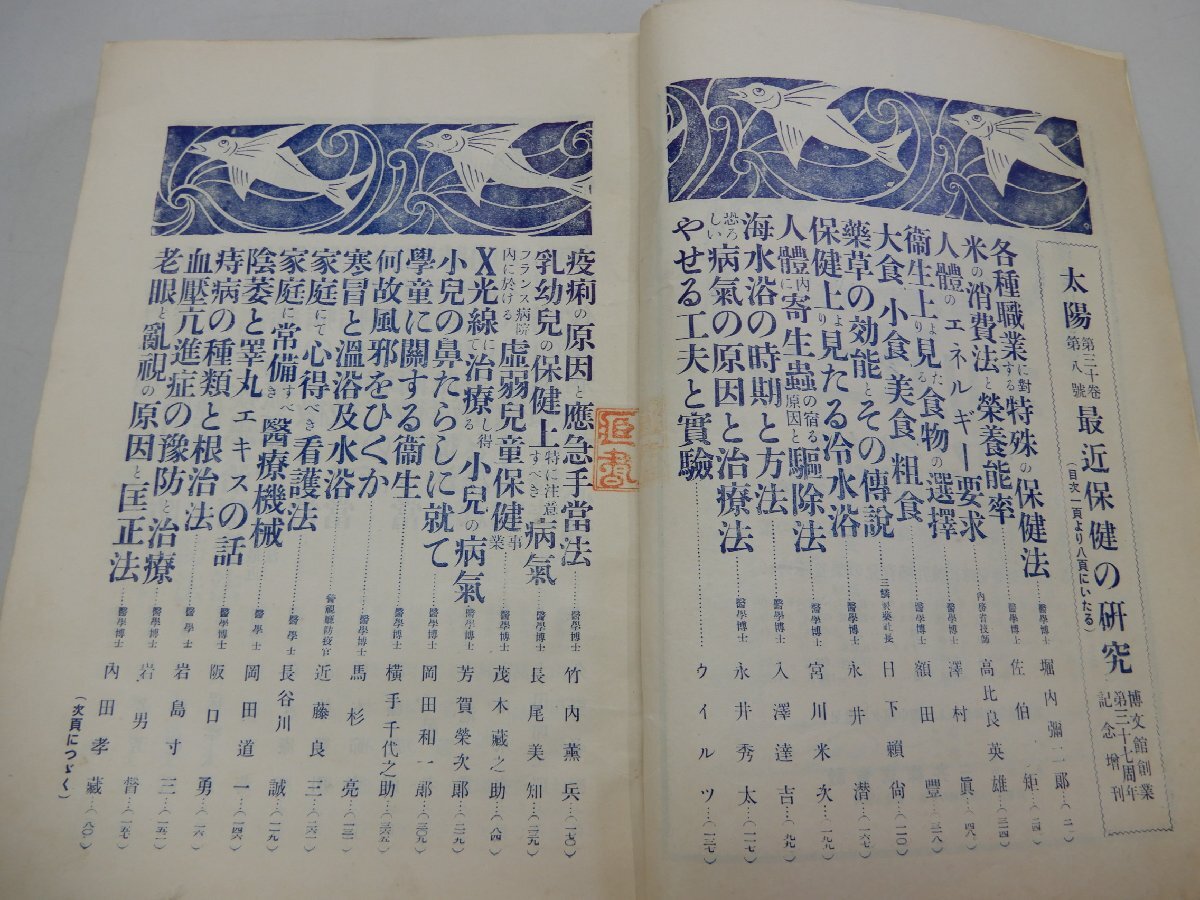 太陽 第三十卷 第八號 最近保健の研究 (目次一頁より八頁にいたる) 博文館創業第三十七周年記念增刊
各種職業に對する特殊の保健法 醫學博士 堀內彌二郎
米の消費法と榮養能率 醫學博士 佐伯矩
人體のエネルギー要求 內務省技師 高比良英雄
衞生上より見たる食物の選擇 醫學博士 澤村眞
大食、小食、美食、粗食 醫學博士 額田豐
藥草の効能とその傳說 日下賴尙
保健上より見たる冷水浴 醫學博士 永井潜
人體內に寄生蟲の宿る原因と驅除法 醫學博士 宮川米次
海水浴の時期と方法 醫學博士 入澤達吉
恐ろしい病氣の原因と治療法 醫學博士 永井秀太
やせる工夫と實驗 ウイルツ
疫痢の原因と應急手當法 醫學博士 竹內薰兵
乳幼兒の保健上特に注意すべき病氣 醫學博士 長尾美知
フランス病院內に於ける虛弱兒童保健事業 醫學博士 茂木藏之助
X光線にて治療し得る小兒の病氣 醫學博士 芳賀榮次郎
小兒の鼻たらしに就て 醫學博士 岡田和一郞
學童に關する衞生 醫學博士 橫手千代之助
何故風邪をひくか 醫學博士 馬杉亮
寒冒と溫浴及水浴 警視廳防疫官 近藤良三
家庭にて心得べき看護法 醫學士 長谷川誠
家庭に常備すべき醫療機械 醫學士 岡田道一
陰萎と睪丸エキスの話 醫學博士 阪口勇
痔病の種類と根治法 醫學士 岩島寸三
血壓亢進症の豫防と治療 醫學博士 岩男督
老眼と亂視の原因と匡正法 醫學博士 內田孝藏
(次頁につゞく)